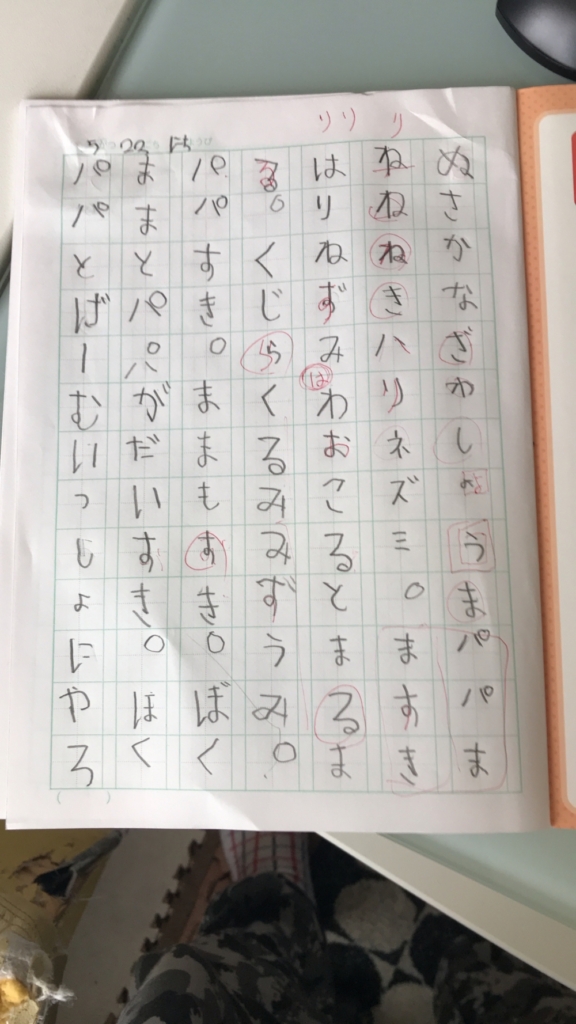 ぬさかなざかしょうまパパま
ねねねきハリネズミ。ますき
はりねずみわおこるとまるま
る。くじらくるみみずうみ。
パパすき。ままもすき。ぼく
ままとパパがだいすき。ほく
パパとげーむいっしょにやろ
りり り
ば